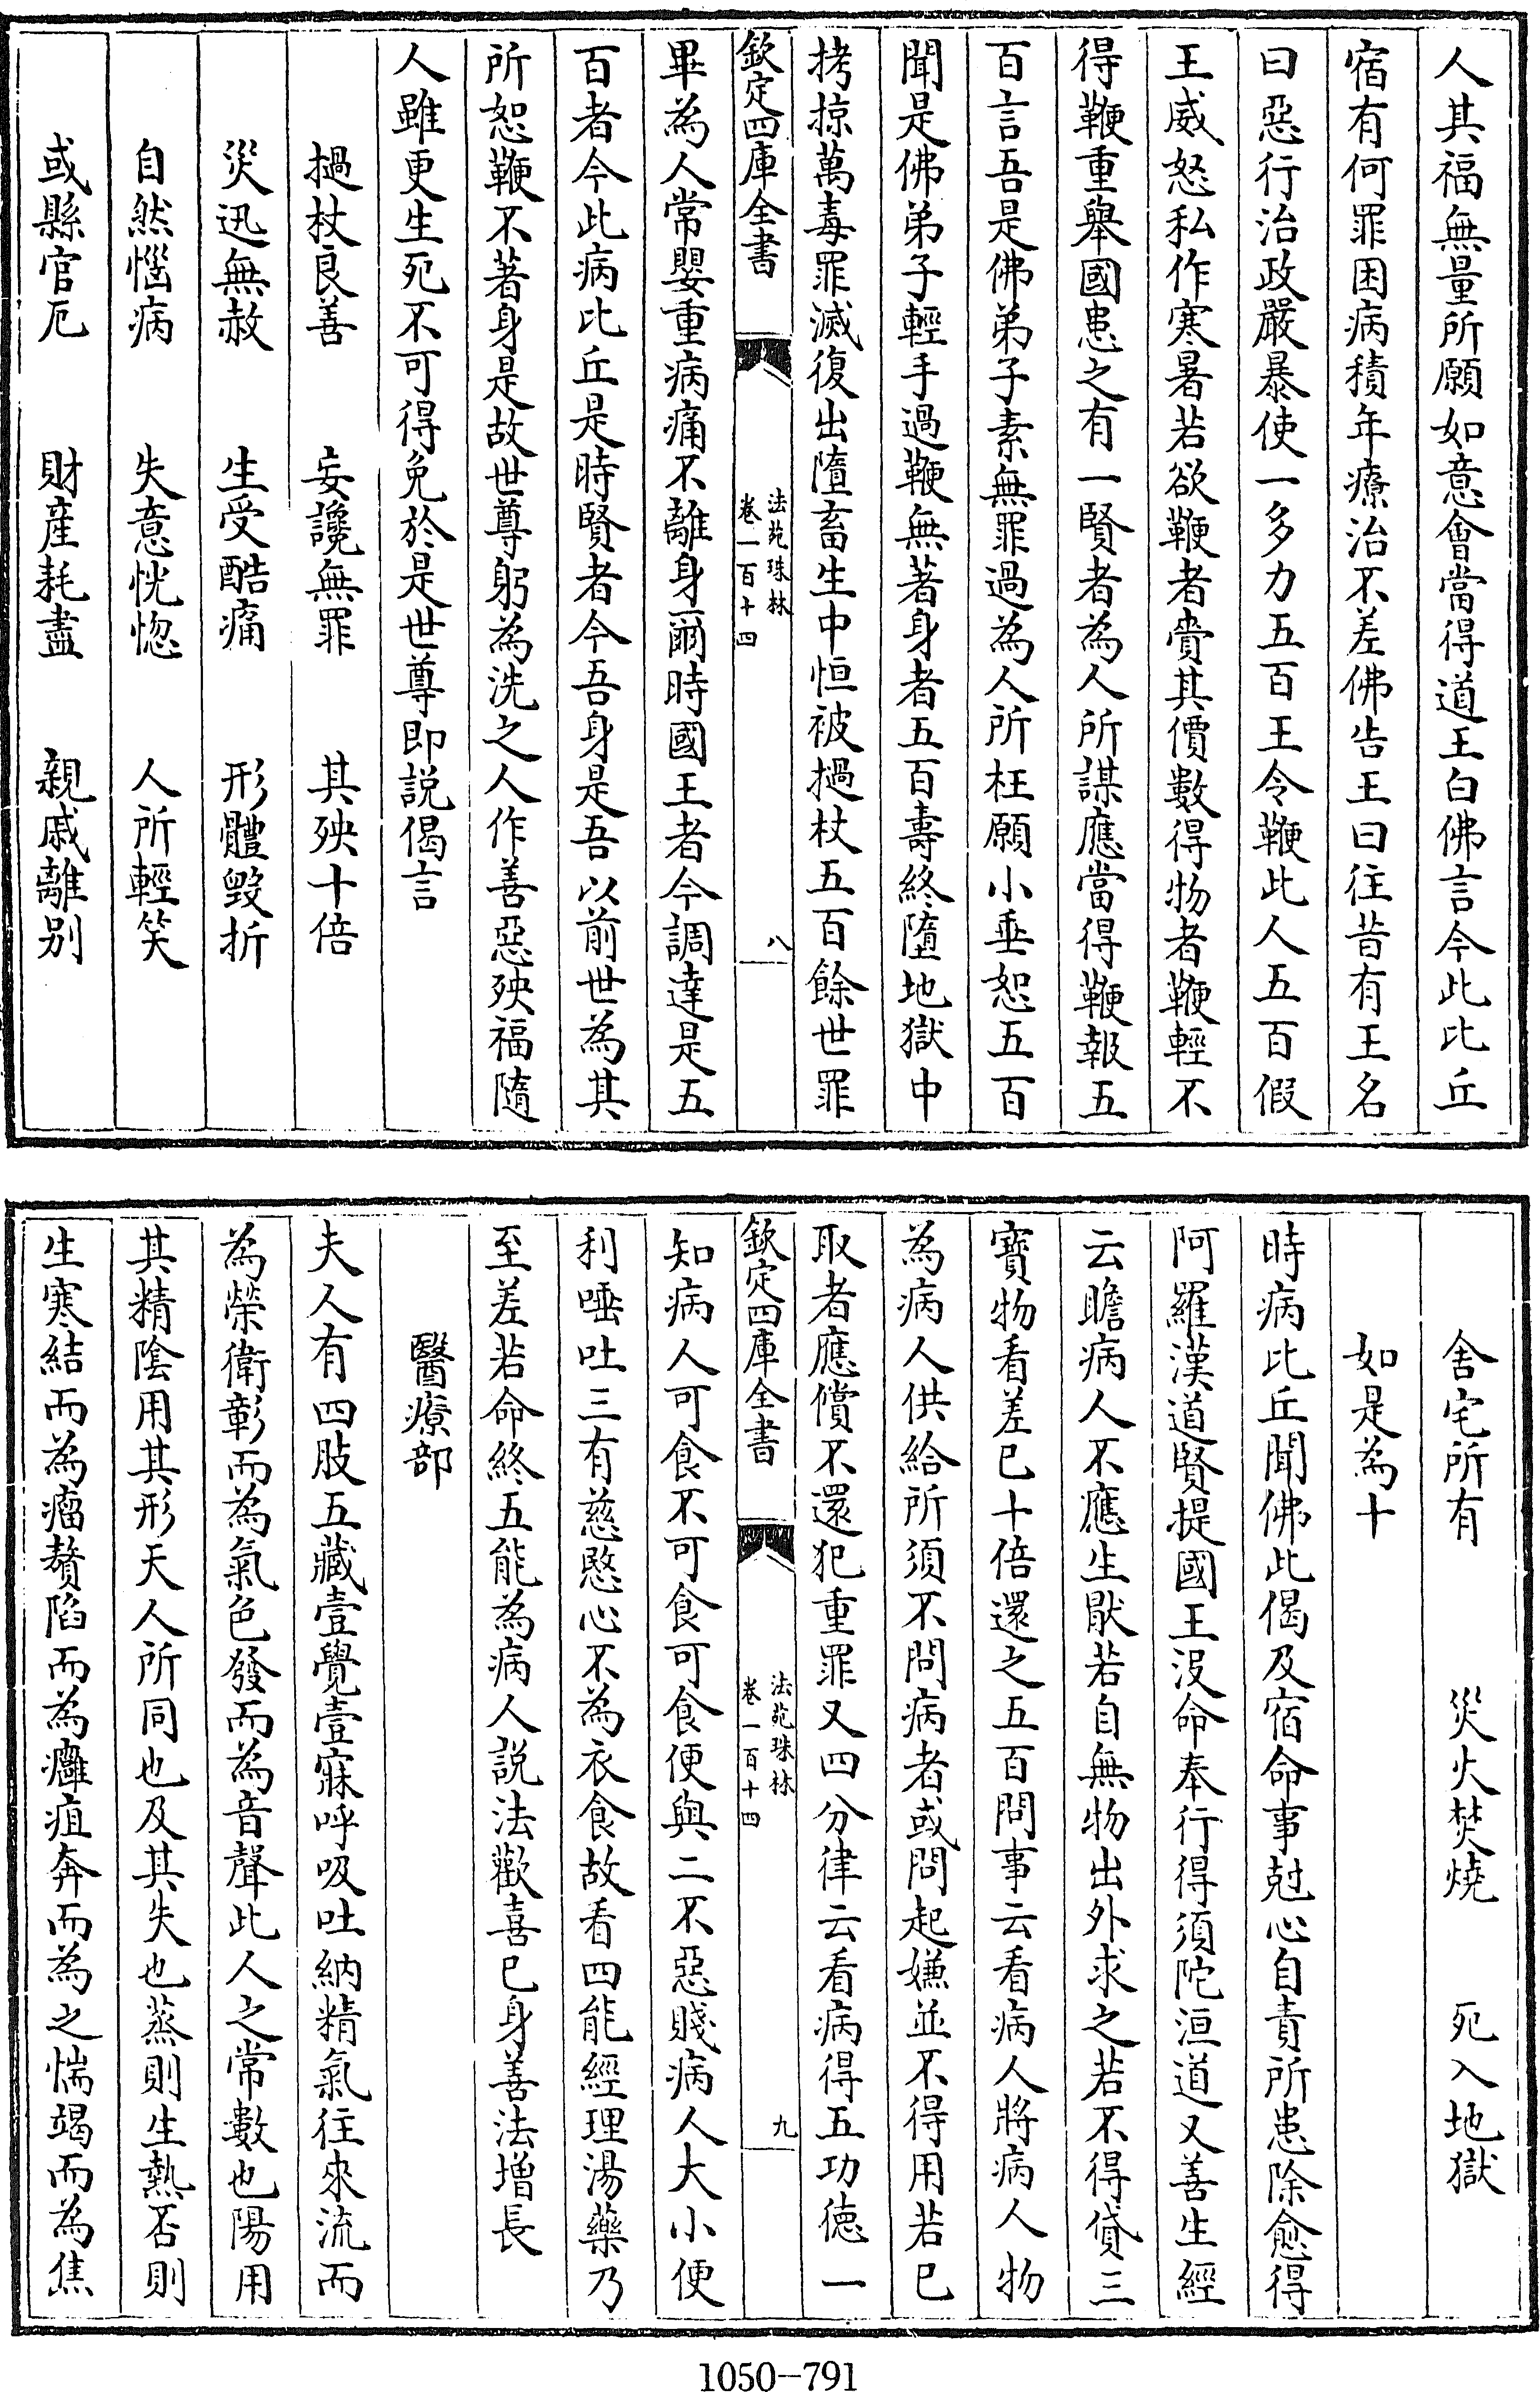 人其福無量所願如意會當得道王白佛言今此比丘
宿有何罪困病積年療治不差佛告王曰往昔有王名
曰惡行治政嚴暴使一多力五百王令鞭此人五百假
王威怒私作寒暑若欲鞭者賣其價數得物者鞭輕不
得鞭重舉國患之有一賢者為人所謀應當得鞭報五
百言吾是佛弟子素無罪過為人所枉願小垂恕五百
聞是佛弟子輕手過鞭無著身者五百壽終墮地獄中
拷掠萬毒罪滅復出墮畜生中恒被撾杖五百餘世罪
欽定四庫全書
法苑珠林
卷一百十四
八
畢為人常嬰重病痛不離身爾時國王者今調達是五
百者今此病比丘是時賢者今吾身是吾以前世為其
所恕鞭不著身是故世尊躬為洗之人作善惡殃福隨
人雖更生死不可得免於是世尊即説偈言
撾杖良善 妄讒無罪 其殃十倍
災迅無赦 生受酷痛 形體毀折
自然惱病 失意恍惚 人所輕笑
或縣官厄 財産耗盡 親戚離別
舍宅所有 災火焚燒 死入地獄
如是為十
時病比丘聞佛此偈及宿命事尅心自責所患除愈得
阿羅漢道賢提國王没命奉行得須陀洹道又善生經
云瞻病人不應生厭若自無物出外求之若不得貸三
寶物看差已十倍還之五百問事云看病人將病人物
為病人供給所須不問病者或問起嫌並不得用若已
取者應償不還犯重罪又四分律云看病得五功徳一
欽定四庫全書
法苑珠林
卷一百十四
九
知病人可食不可食可食便與二不惡賤病人大小便
利唾吐三有慈愍心不為衣食故看四能經理湯藥乃
至差若命終五能為病人説法歡喜已身善法增長
醫療部
夫人有四肢五藏壹覺壹寐呼吸吐納精氣往來流而
為榮衛彰而為氣色發而為音聲此人之常數也陽用
其精陰用其形天人所同也及其失也蒸則生熱否則
生寒結而為瘤贅陷而為癰疽奔而為之惴竭而為焦
1050-791